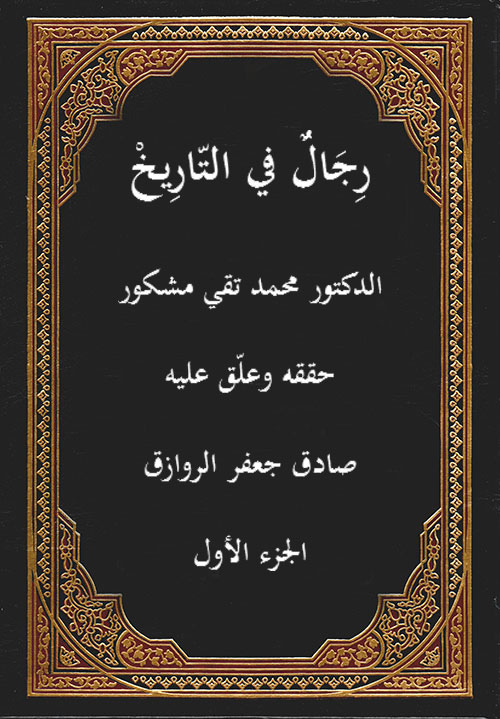 رِجَالٌ في التّارِيخْ
الدكتور محمد تقي مشكور
حققه وعلّق عليه
صادق جعفر الروازق
الجزء الأول